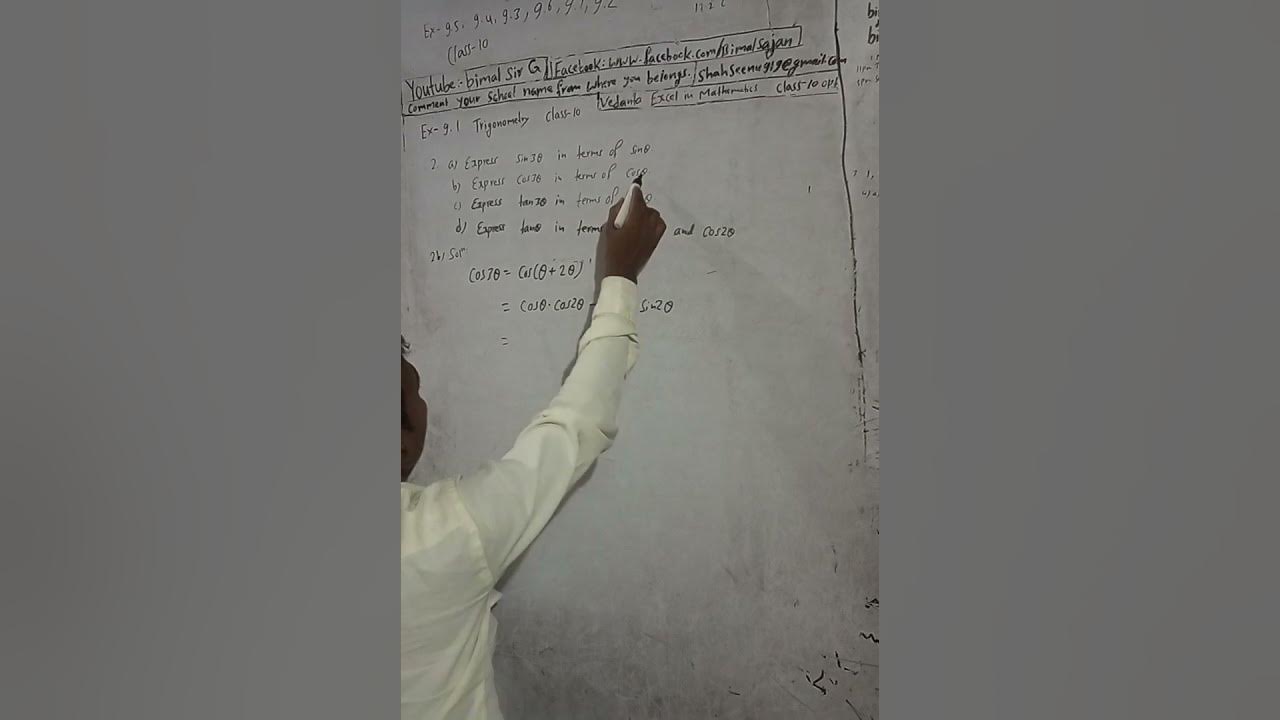 Ex- 9.5, 9.4, 9.3, 9.6, 9.1, 9.2
Class-10
Youtube:- bimal Sir G || Facebook: www.facebook.com/bimalsajan
Comment your School name from where you belongs. / Shahseenu919@gmail.com
Ex- 9.1 Trigonometry Class-10 Vedanta Excel in Mathematics Class-10 opt
2. a) Express Sin3θ in terms of Sinθ.
b) Express Cos3θ in terms of Cosθ
c) Express tan3θ in terms of θ
d) Express tanθ in terms and Cos2θ
2b) Solⁿ:
Cos3θ = Cos(θ+2θ)
= Cosθ·Cos2θ - Sin2θ
=